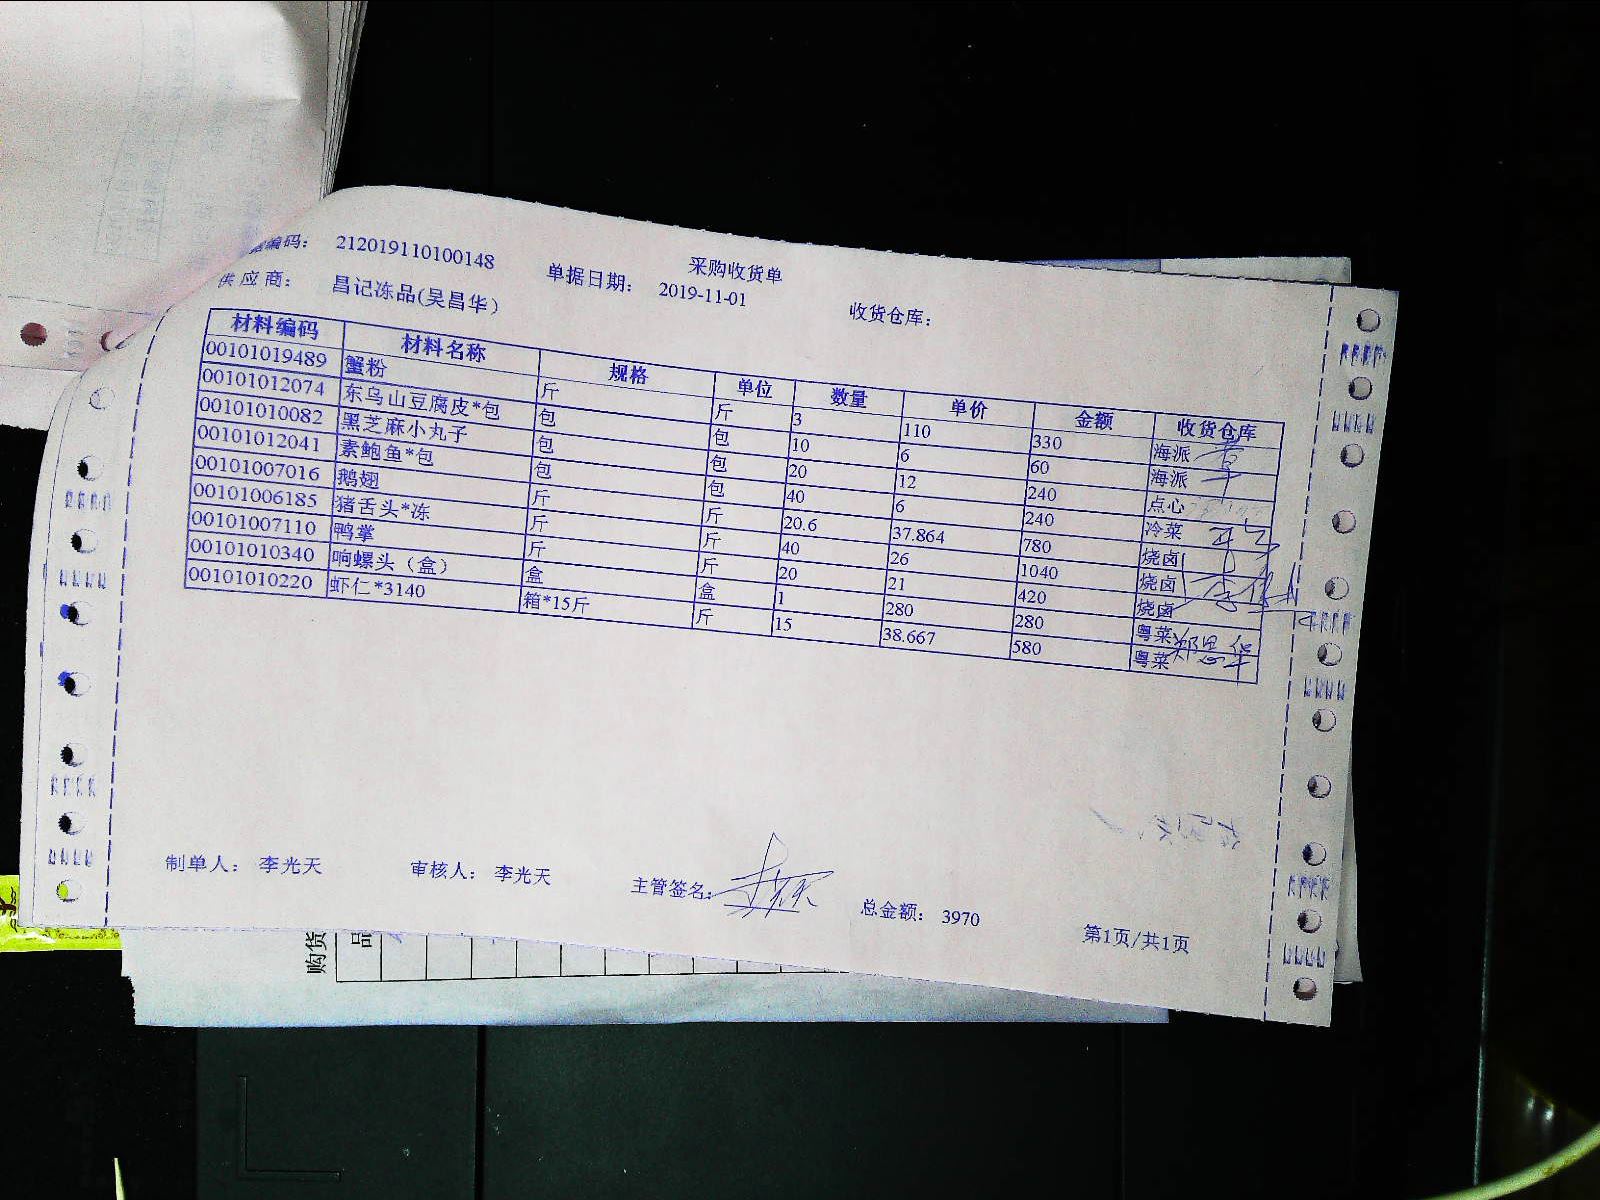 编码： 212019110100148 采购收货单
供应商： 昌记冻品(吴昌华) 单据日期： 2019-11-01 收货仓库：
材料编码 材料名称 规格 单位 数量 单价 金额 收货仓库
00101019489 蟹粉 斤 斤 3 110 330 海派
00101012074 东乌山豆腐皮*包 包 包 10 6 60 海派
00101010082 黑芝麻小丸子 包 包 20 12 240 点心
00101012041 素鲍鱼*包 包 包 40 6 240 冷菜
00101007016 鹅翅 斤 斤 20.6 37.864 780 烧卤
00101006185 猪舌头*冻 斤 斤 40 26 1040 烧卤
00101007110 鸭掌 斤 斤 20 21 420 烧卤
00101010340 响螺头（盒） 盒 盒 1 280 280 粤菜
00101010220 虾仁*3140 箱*15斤 斤 15 38.667 580 粤菜
制单人： 李光天 审核人： 李光天 主管签名： 总金额： 3970 第1页/共1页
购货
品